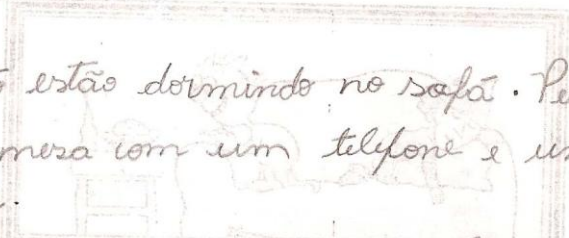 estão dormindo no sofá. Pe
mesa com um telefone e us